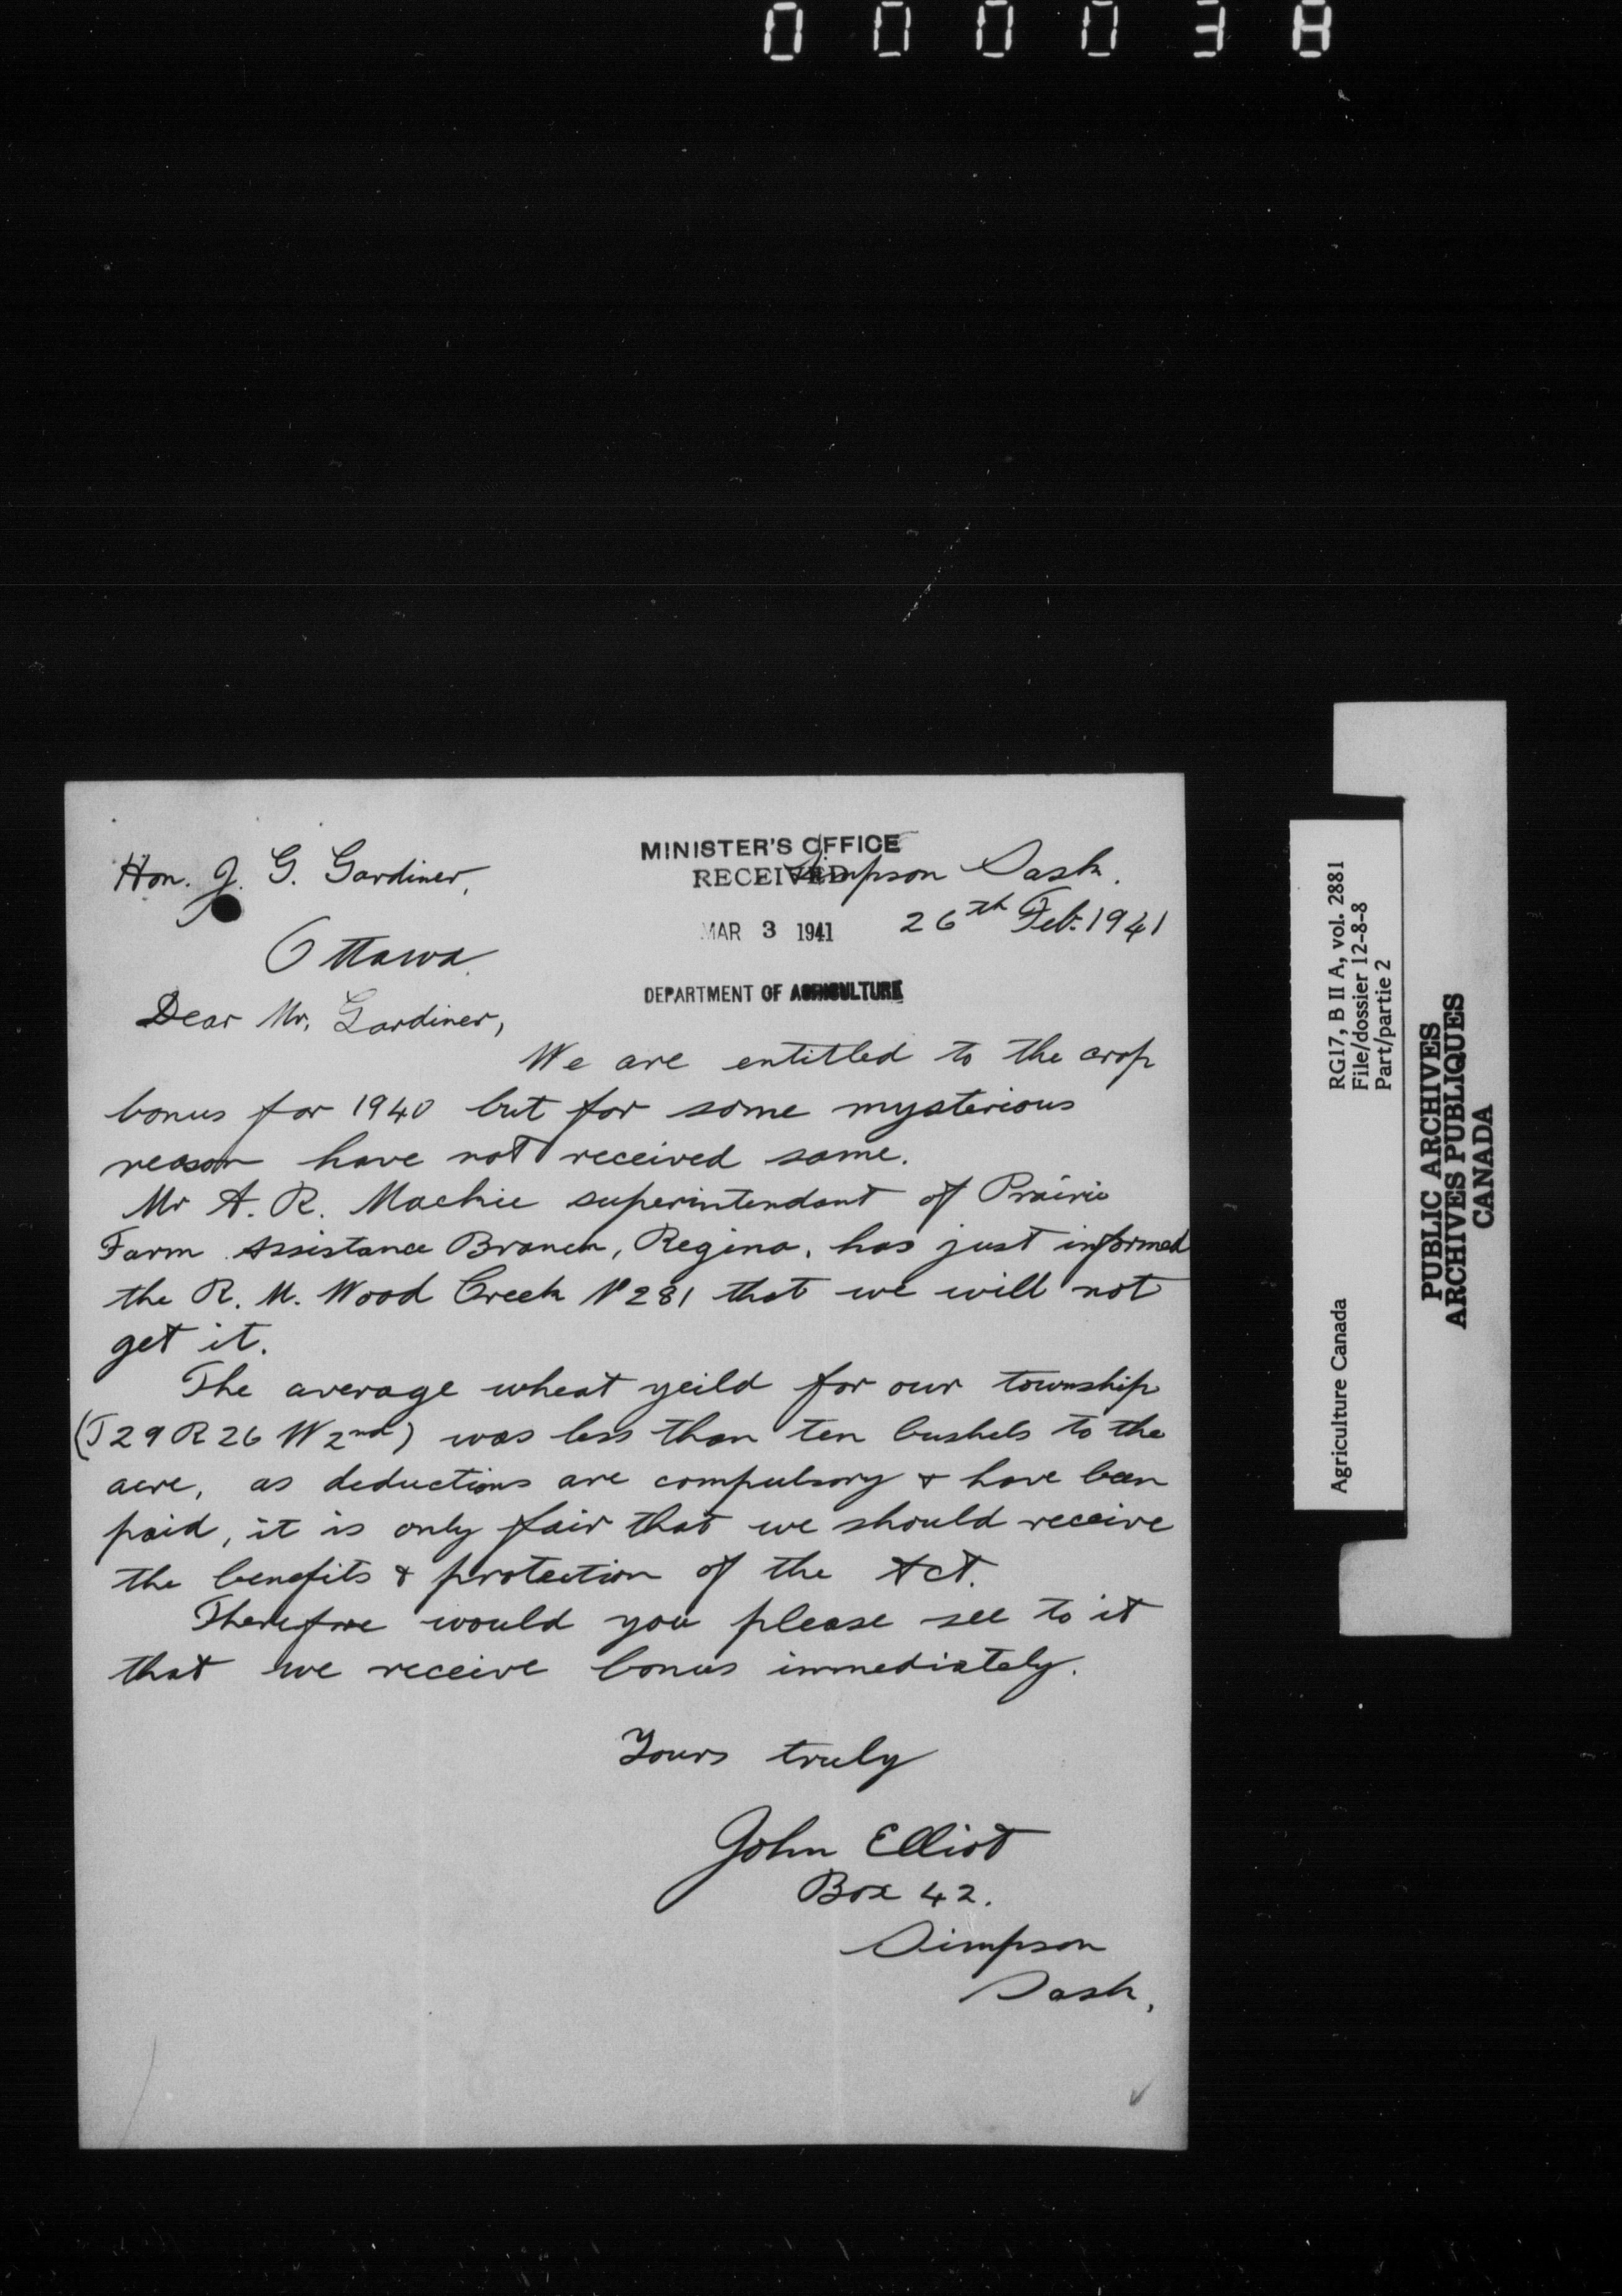 000038
MINISTER'S OFFICE
RECEIVED
MAR 3 1941
DEPARTMENT OF AGRICULTURE
Hon. J. G. Gardiner,
Ottawa.
Simpson Sask.
26th Feb. 1941
Dear Mr. Gardiner,
We are entitled to the crop
bonus for 1940 but for some mysterious
reason have not received same.
Mr A. R. Mackie superintendant of Prairie
Farm Assistance Branch, Regina, has just informed
the R. M. Wood Creek No 281 that we will not
get it.
The average wheat yeild for our township
(T 29 R 26 W 2nd) was less than ten bushels to the
acre, as deductions are compulsory & have been
paid, it is only fair that we should receive
the benefits & protection of the Act.
Therefore would you please see to it
that we receive bonus immediately.
Yours truly
John Elliot
Box 42.
Simpson
Sask.
RG17, B II A, vol. 2881
File/dossier 12-8-8
Part/partie 2
Agriculture Canada
PUBLIC ARCHIVES
ARCHIVES PUBLIQUES
CANADA